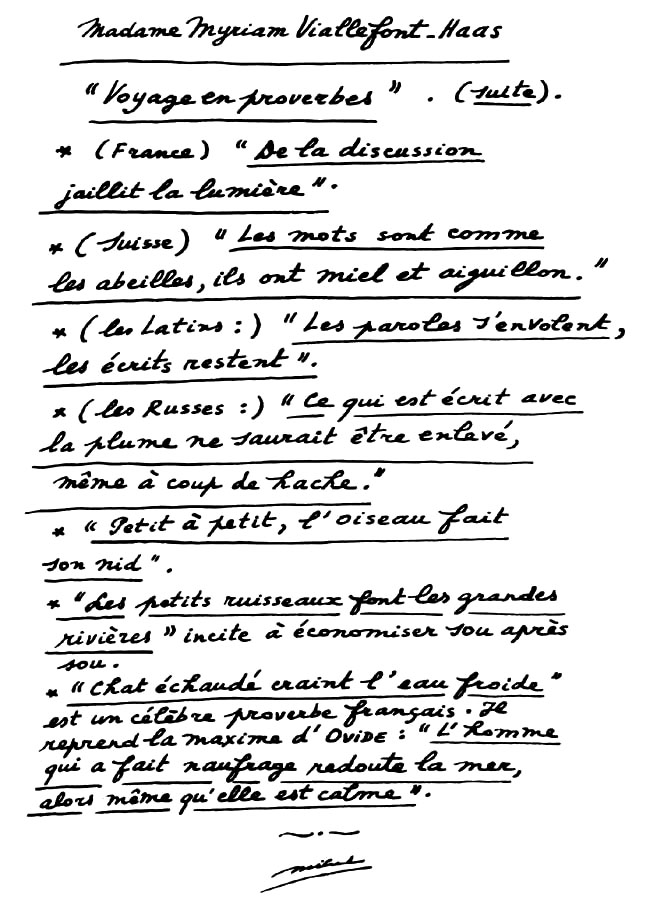 Madame Myriam Viallefont-Haas
"Voyage en proverbes" . (suite).
* (France) "De la discussion
jaillit la lumière".
* (Suisse) "Les mots sont comme
les abeilles, ils ont miel et aiguillon."
* (les Latins :) "Les paroles s'envolent,
les écrits restent".
* (les Russes :) "Ce qui est écrit avec
la plume ne saurait être enlevé,
même à coup de hache."
* "Petit à petit, l'oiseau fait
son nid".
* "Les petits ruisseaux font les grandes
rivières" incite à économiser sou après
sou.
* "Chat échaudé craint l'eau froide"
est un célèbre proverbe français. Il
reprend la maxime d'OVIDE : "L'homme
qui a fait naufrage redoute la mer,
alors même qu'elle est calme".